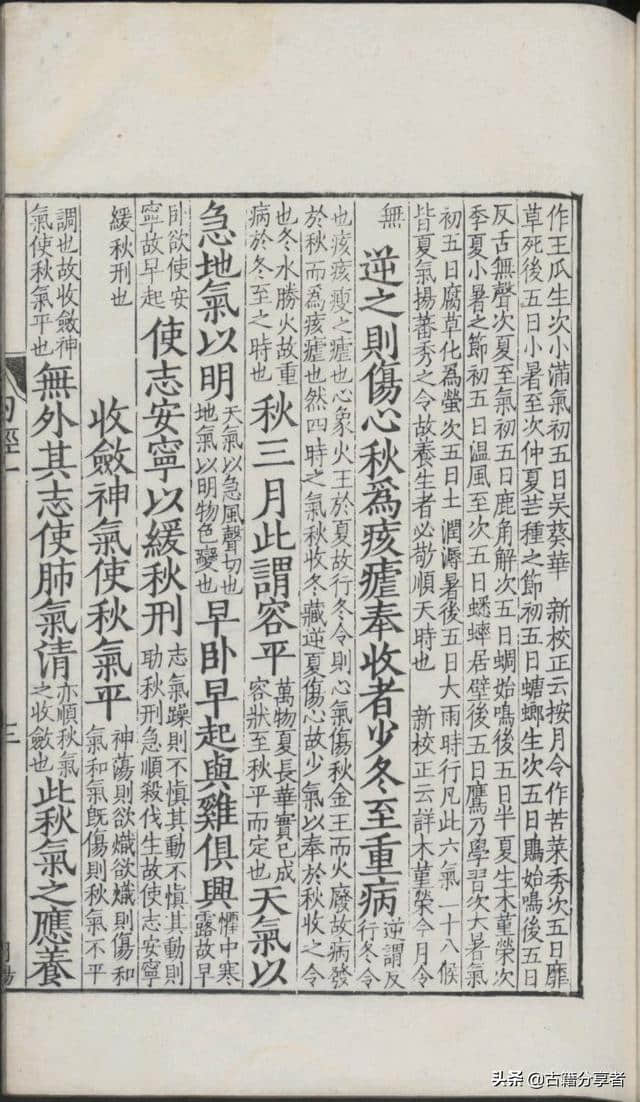 作王瓜生次小滿氣初五日吳葵華　新校正云按月令作苦菜秀次五日靡
草死後五日小暑至次仲夏芒種之節初五日螗螂生次五日鵙始鳴後五日
反舌無聲次夏至氣初五日鹿角解次五日蜩始鳴後五日半夏生木菫榮次
季夏小暑之節初五日温風至次五日蟋蟀居壁後五日鷹乃學習次大暑氣
初五日腐草化為螢次五日土潤溽暑後五日大雨時行凡此六氣一十八候
皆夏氣揚蕃秀之令故養生者必敬順天時也　新校正云詳木菫榮今月令
無
逆之則傷心秋為痎瘧奉收者少冬至重病
逆謂反
行冬令
也痎痎瘦之瘧也心象火王於夏故行冬令則心氣傷秋金王而火廢故病發
於秋而為痎瘧也然四時之氣秋收冬藏逆夏傷心故少氣以奉於秋收之令
也冬水勝火故重
病於冬至之時也
秋三月此謂容平
萬物夏長華實已成
容狀至秋平而定也
天氣以
急地氣以明
天氣以急風聲切也
地氣以明物色變也
早卧早起與雞俱興
懼中寒
露故早
卧欲使安
寧故早起
使志安寧以緩秋刑
志氣躁則不慎其動不慎其動則
助秋刑急順殺伐生故使志安寧
緩秋刑也
收斂神氣使秋氣平
神蕩則欲熾欲熾則傷和
氣和氣既傷則秋氣不平
調也故收斂神
氣使秋氣平也
無外其志使肺氣清
亦順秋氣
之收斂也
此秋氣之應養
内經一
三
头条 @古籍分享者